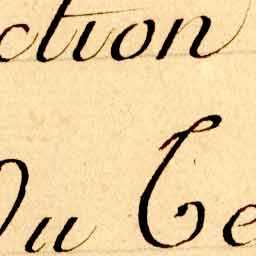 ction
Du Ce